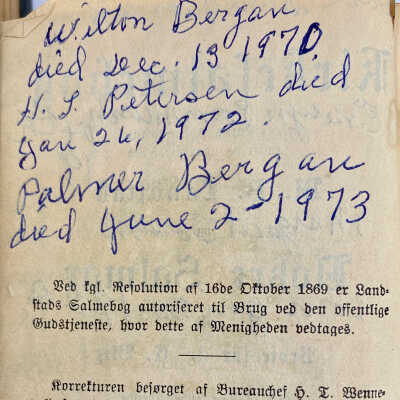 Wilton Bergan
died Dec. 13 1970
H. L. Petersen died
Jan 26, 1972.
Palmer Bergan
died June 2-1973
Ved kgl. Resolution af 16de Oktober 1869 er Land-
stads Salmebog autoriseret til Brug ved den offentlige
Gudstjeneste, hvor dette af Menigheden vedtages.
Korrekturen besørget af Bureauchef H. T. Wenne-